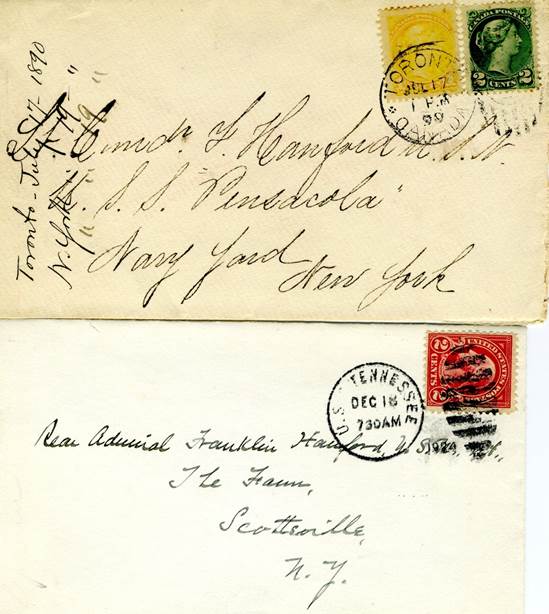 CANADA POSTAGE
2 CENTS 2
TORONTO
JUL 17
1 PM
90
CANADA
Toronto - July 17 1890
N. York - " 19 "
Comdr. F. Hanford U.S.N.
U. S. S. "Pensacola"
Navy Yard
New York
UNITED STATES POSTAGE
2 CENTS 2
U.S.S. TENNESSEE
DEC 18
730AM
1924
Rear Admiral Franklin Hanford, U.S.N.,
The Farm,
Scottsville,
N. Y.